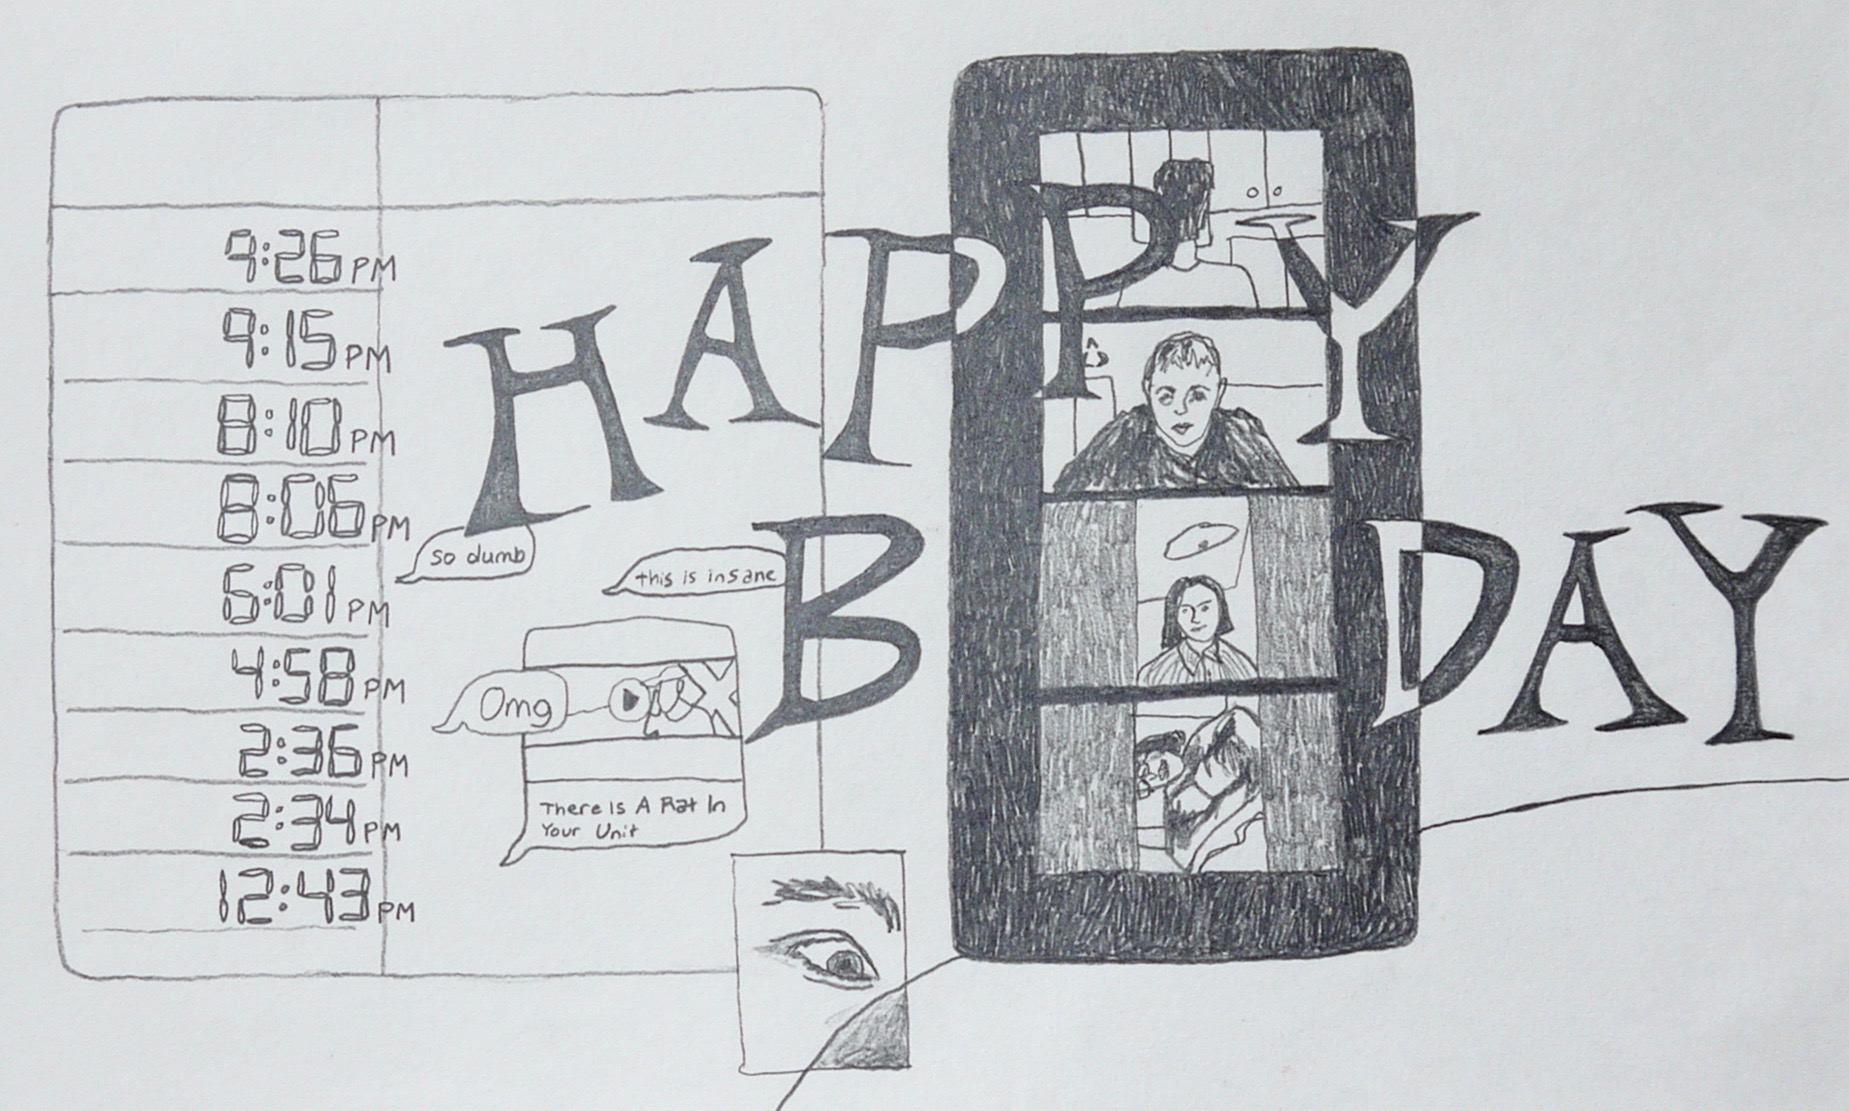 9:26 PM
9:15 PM
8:10 PM
8:06 PM
6:01 PM
4:58 PM
2:36 PM
2:34 PM
12:43 PM
HAPPY
B DAY
so dumb
this is insane
Omg
There Is A Rat In
Your Unit